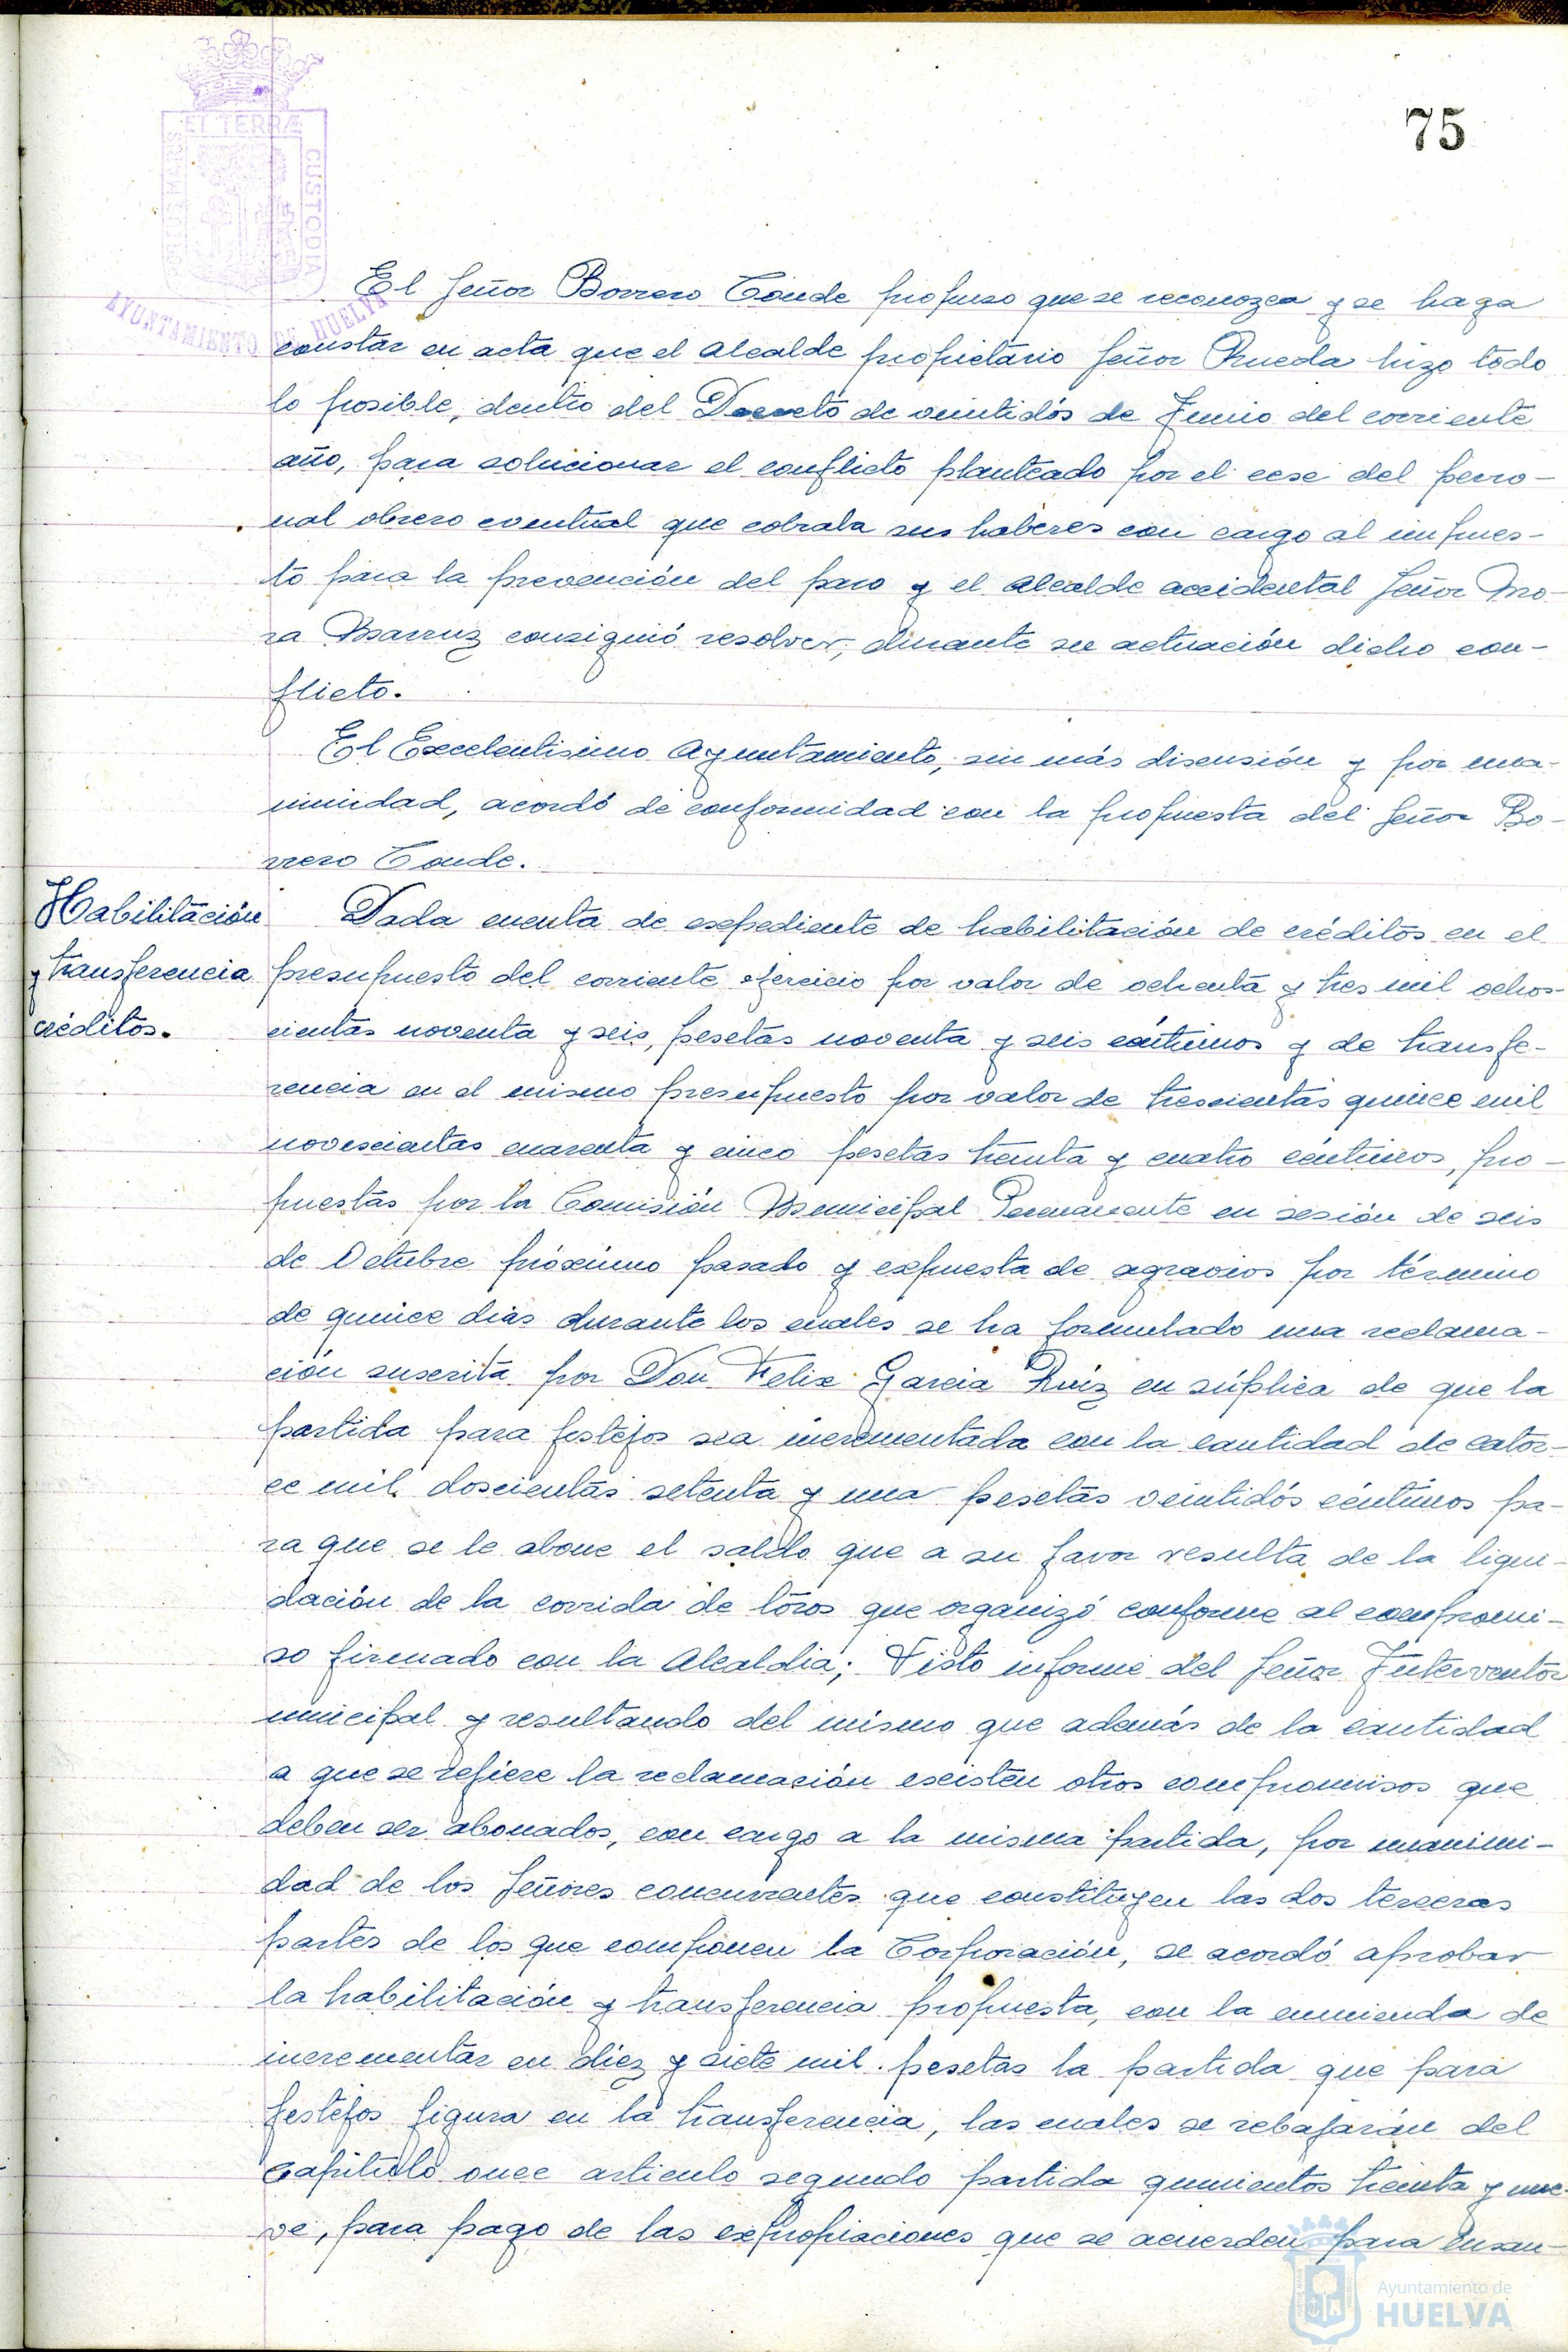 75
PORTUS MARIS
ET TERRÆ
CUSTODIA
AYUNTAMIENTO DE HUELVA
El Señor Borrero Conde propuso que se reconozca y se haga
constar en acta que el Alcalde propietario Señor Rueda hizo todo
lo posible, dentro del Decreto de veintidós de Junio del corriente
año, para solucionar el conflicto planteado por el cese del perso-
nal obrero eventual que cobraba sus haberes con cargo al impues-
to para la prevención del paro y el Alcalde accidental Señor Mo-
ra Marruz consiguió resolver, durante su actuación dicho con-
flicto.
El Excelentisimo Ayuntamiento, sin más discusión y por una-
nimidad, acordó de conformidad con la propuesta del Señor Bo-
rrero Conde.
Habilitación
y transferencia
créditos.
Dada cuenta de expediente de habilitación de créditos en el
presupuesto del corriente ejercicio por valor de ochenta y tres mil ochos-
cientas noventa y seis, pesetas noventa y seis céntimos y de transfe-
rencia en el mismo presupuesto por valor de trescientas quince mil
novescientas cuarenta y cinco pesetas treinta y cuatro céntimos, pro-
puestas por la Comisión Municipal Permanente en sesión de seis
de Octubre próximo pasado y expuesta de agravios por término
de quince dias durante los cuales se ha formulado una reclama-
ción suscrita por Don Felix Garcia Ruíz en súplica de que la
partida para festejos sea incrementada con la cantidad de cator-
ce mil doscientas setenta y una pesetas veintidós céntimos pa-
ra que se le abone el saldo que a su favor resulta de la liqui-
dación de la corrida de toros que organizó conforme al compromi-
so firmado con la Alcaldia; Visto informe del Señor Interventor
municipal y resultando del mismo que además de la cantidad
a que se refiere la reclamación existen otros compromisos que
deben ser abonados, con cargo a la misma partida, por unanimi-
dad de los Señores concurrentes que constituyen las dos terceras
partes de los que componen la Corporación, se acordó aprobar
la habilitación y transferencia propuesta, con la enmienda de
incrementar en diez y siete mil pesetas la partida que para
festejos figura en la transferencia, las cuales se rebajarán del
Capitulo once articulo segundo partida quinientos treinta y nue-
ve, para pago de las expropiaciones que se acuerden para ensan-
Ayuntamiento de
HUELVA